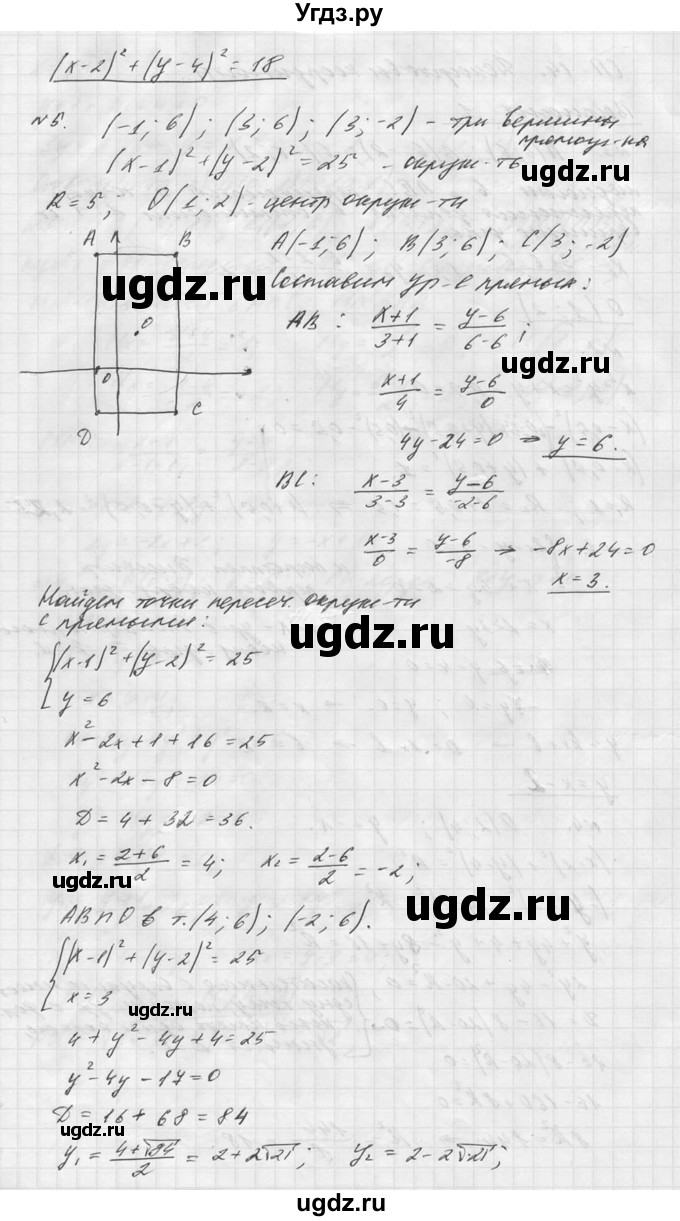 Угдз.ру
(x-2)² + (y-4)² = 18
№5. (-1; 6); (3; 6); (3; -2) - три вершины
прямоуг-ка
(x-1)² + (y-2)² = 25 - окруж-ть
R = 5; O(1; 2) - центр окруж-ти
A B A(-1; 6); B(3; 6); C(3; -2)
ugdz.ru
Составим ур-е прямых:
AB: (x+1)/(3+1) = (y-6)/(6-6);
O
ugdz.ru
0
(x+1)/4 = (y-6)/0
D C
4y-24=0 → y=6.
BC: (x-3)/(3-3) = (y-6)/(-2-6)
ugdz.ru
(x-3)/0 = (y-6)/-8 → -8x+24=0
x=3.
ugdz.ru
Найдем точки пересеч. окруж-ти
с прямыми:
ugdz.ru
{(x-1)² + (y-2)² = 25
y = 6
x² - 2x + 1 + 16 = 25
x² - 2x - 8 = 0
D = 4 + 32 = 36.
x₁ = (2+6)/2 = 4; x₂ = (2-6)/2 = -2;
ugdz.ru
AB ∩ O в т. (4; 6); (-2; 6).
ugdz.ru
{(x-1)² + (y-2)² = 25
x = 3
ugdz.ru
4 + y² - 4y + 4 = 25
y² - 4y - 17 = 0
D = 16 + 68 = 84
ugdz.ru
y₁ = (4+√84)/2 = 2 + 2√21; y₂ = 2 - 2√21;
ugdz.ru
ugdz.ru